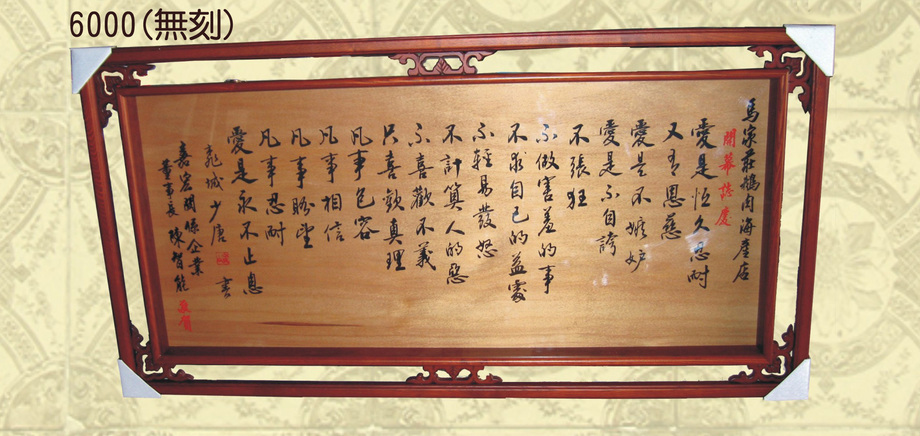 6000(無刻)
馬家莊鵝肉海產店
開幕誌慶
愛是恆久忍耐
又有恩慈
愛是不嫉妒
愛是不自誇
不張狂
不做害羞的事
不求自己的益處
不輕易發怒
不計算人的惡
不喜歡不義
只喜歡真理
凡事包容
凡事相信
凡事盼望
凡事忍耐
愛是永不止息
少唐 書
嘉宏關係企業
董事長 陳智能 敬賀